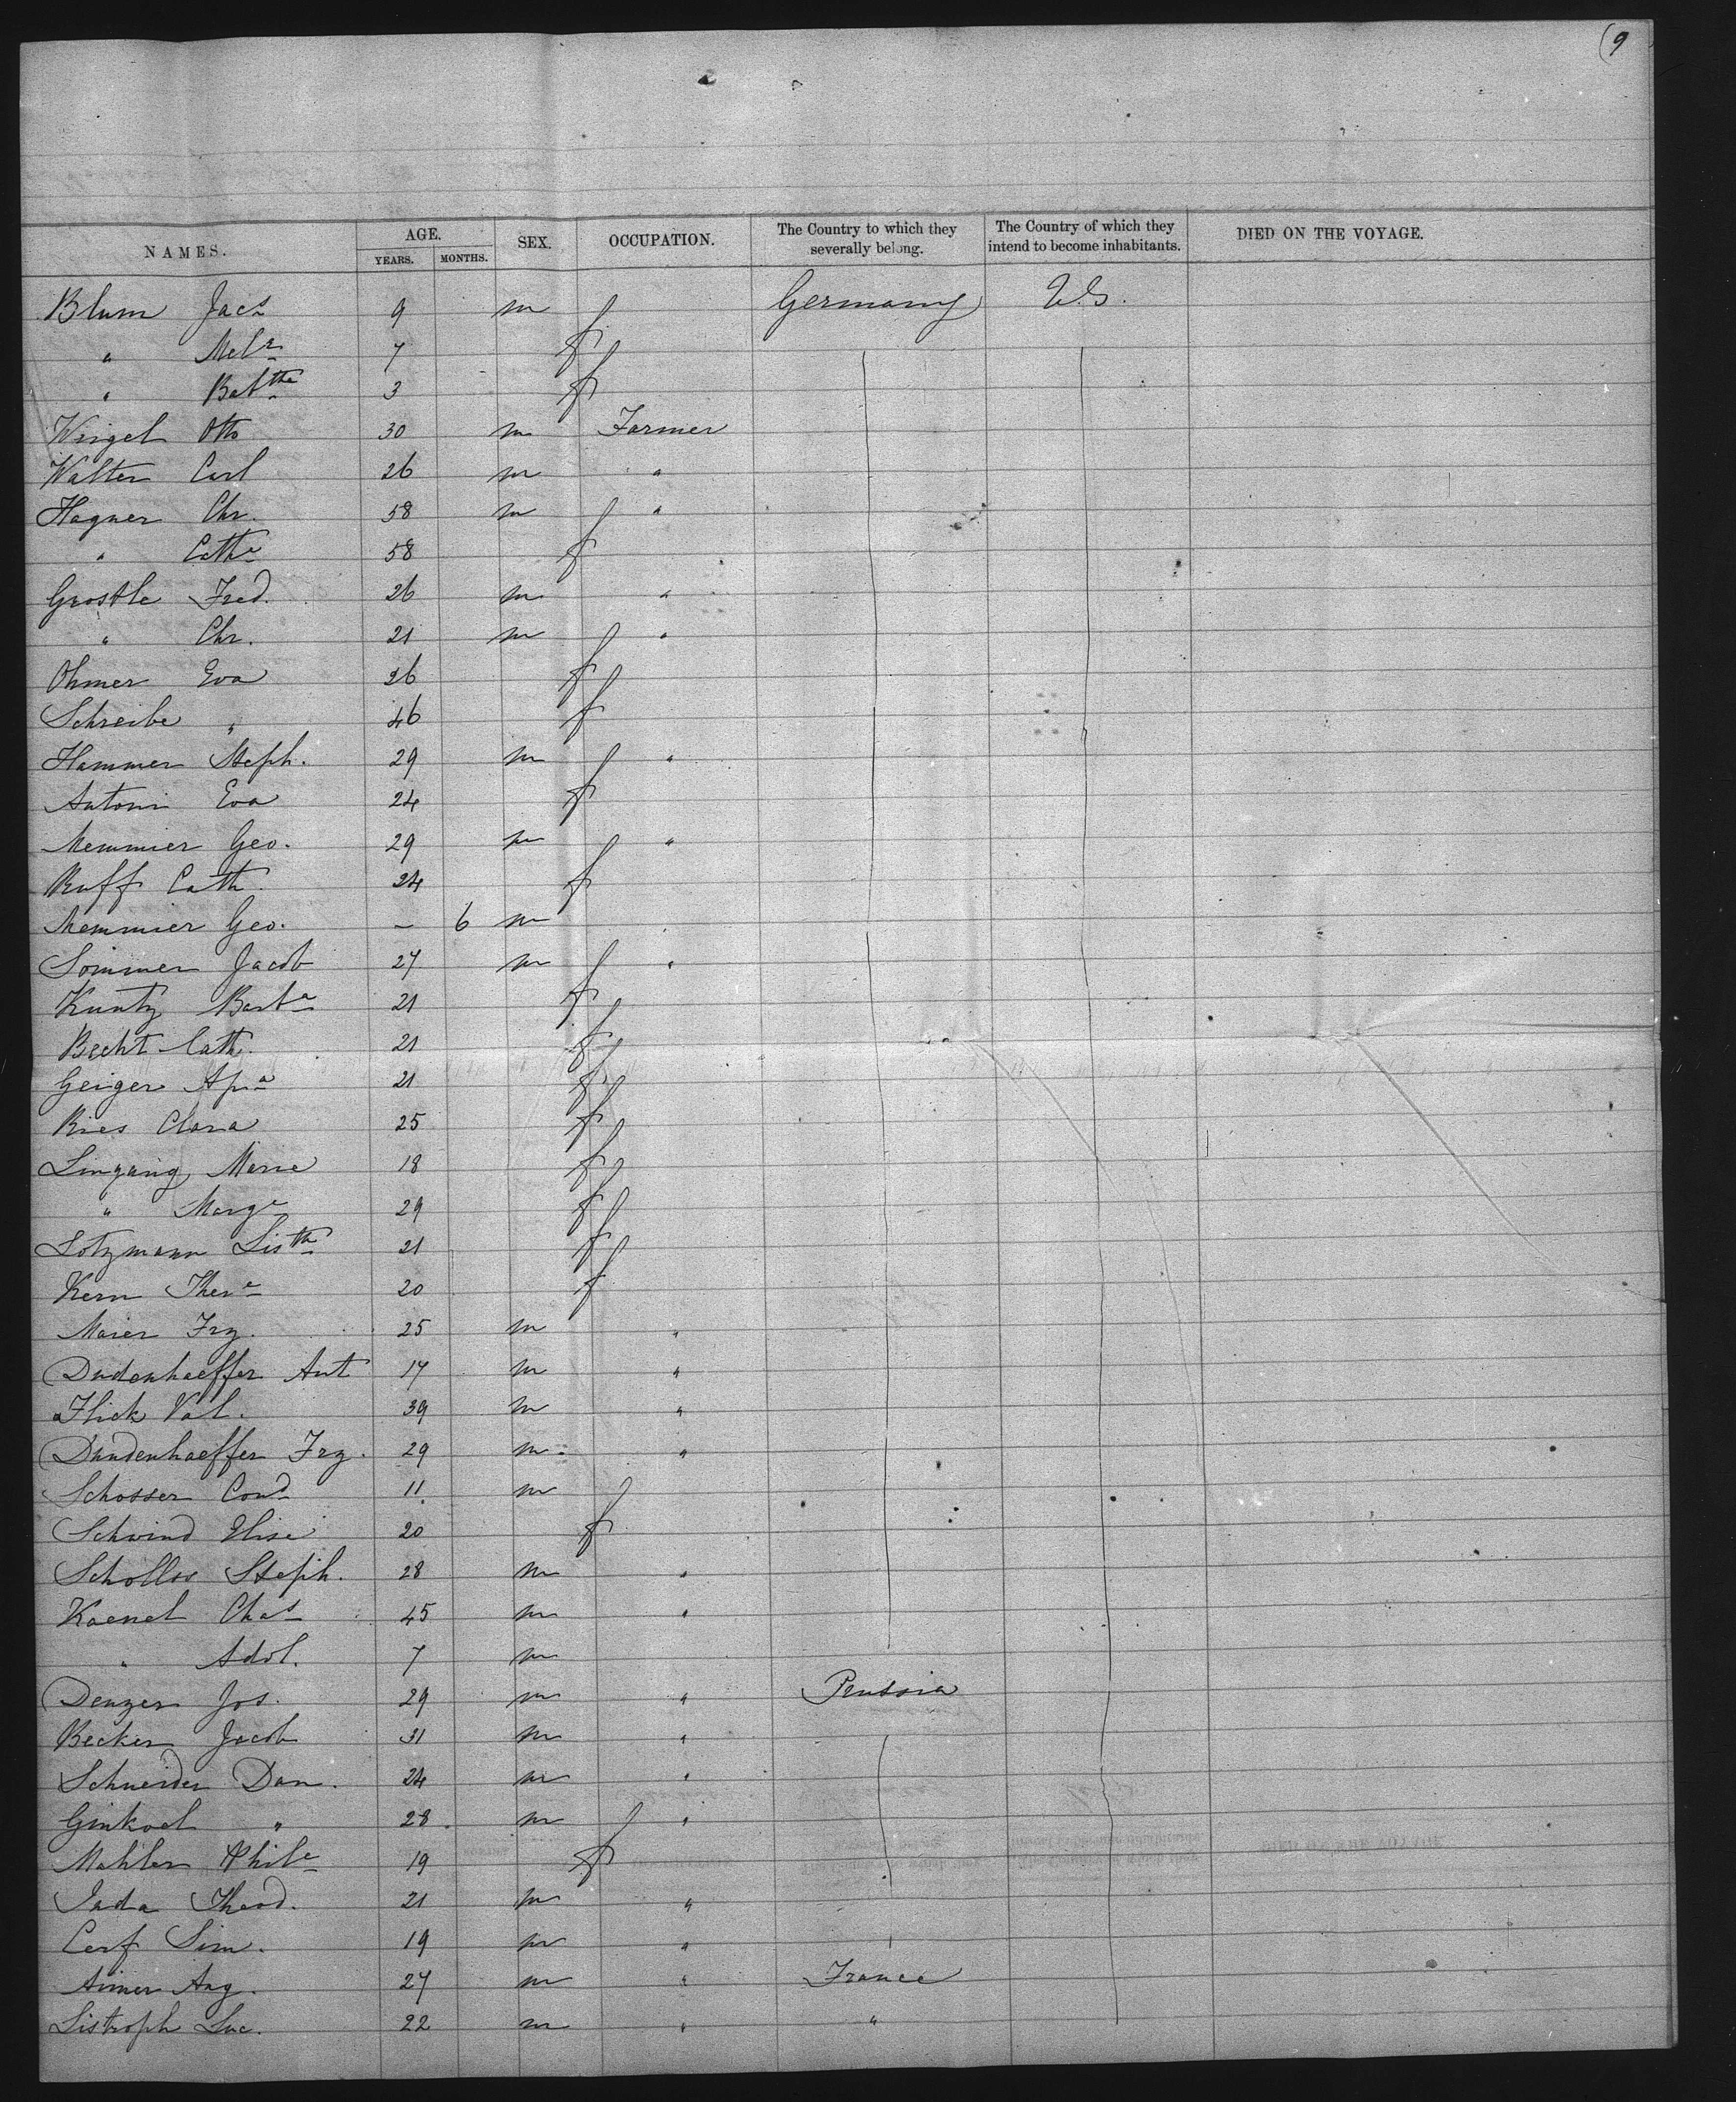 (9
NAMES. AGE. YEARS. MONTHS. SEX. OCCUPATION. The Country to which they severally belong. The Country of which they intend to become inhabitants. DIED ON THE VOYAGE.
Blum Jacs 9 m Germany U.S.
" Mela 7 f
" Batthe 3 f
Weigel Otto 30 m Farmer
Walter Carl 26 m "
Hagner Chr. 58 m "
" Cathe 58 f
Grostle Fred. 26 m "
" Chr. 21 m "
Ohmer Eva 26 f
Schreibe " 46 f
Hammer Steph. 29 m "
Antoni Eva 24 f
Memmier Geo. 29 m "
Ruff Cath. 24 f
Memmier Geo. – 6 m
Sommer Jacob 27 m "
Kuntz Barba 21 f
Becht Cath. 21 f
Geiger Apa 21 f
Ries Clara 25 f
Lingang Marie 18 f
" Marge 29 f
Lotzmann Listh 21 f
Kern There 20 f
Maier Frz. 25 m "
Dudenhaeffer Ant 17 m "
Flick Val. 39 m "
Dundenhaeffer Frz. 29 m "
Schosser Cond 11 m
Schwind Elise 20 f
Schollos Steph. 28 m "
Kaenel Chas 45 m "
" Adol. 7 m
Denzer Jos. 29 m " Prussia
Becker Jacob 31 m "
Schneider Dan. 24 m "
Ginkoel " 28 m "
Mahler Phile 19 f
Jada Theod. 21 m "
Cerf Sim. 19 m "
Aimer Aug. 27 m " France
Listroph Luc. 22 m " "